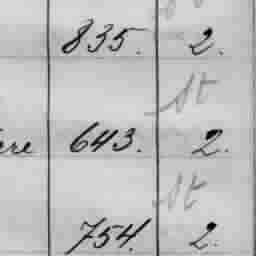 835. 2.
St
ere 643. 2.
St
754. 2.